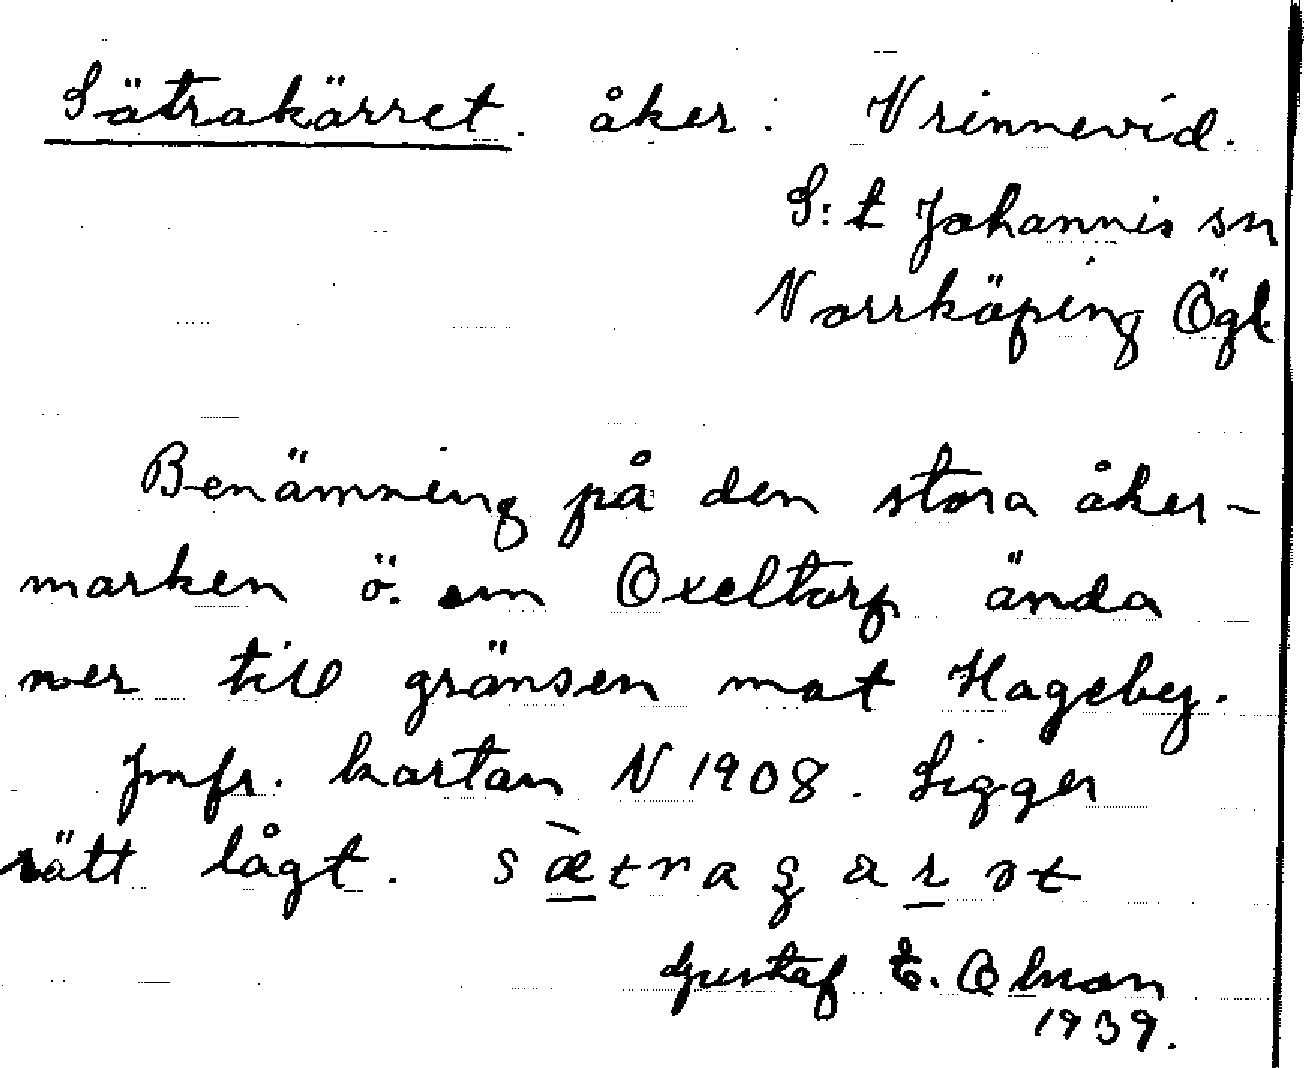 Sätrakärret. åker. Vrinnevid.
S:t Johannis sn
Norrköping Ögl.
Benämning på den stora åker-
marken ö. om Oxeltorp ända
ner till gränsen mot Hageby.
Jmfr. kartan N 1908. Ligger
rätt lågt.
Gustaf E. Olson
1939.